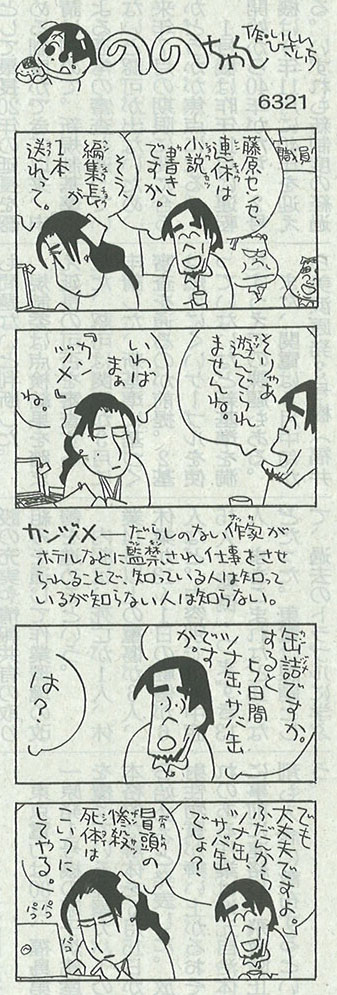 ののちゃん
作・いしい
ひさいち
6321
職員
藤原センセ、
連休は
小説
書き
ですか。
そう、
編集長が
1本
送れって。
そりゃあ
遊んでられ
ませんね。
いわば
まぁ
『カン
ヅメ』
ね。
カンヅメ―だらしのない作家が
ホテルなどに監禁され仕事をさせ
られることで、知っている人は知って
いるが知らない人は知らない。
缶詰ですか。
すると
5日間
ツナ缶、サバ缶
です
か。
は?
でも
大丈夫ですよ。
ふだんから
ツナ缶、
サバ缶
でしょ?
冒頭の
惨殺
死体は
こいつに
してやる。
パコ
パコ
パコ